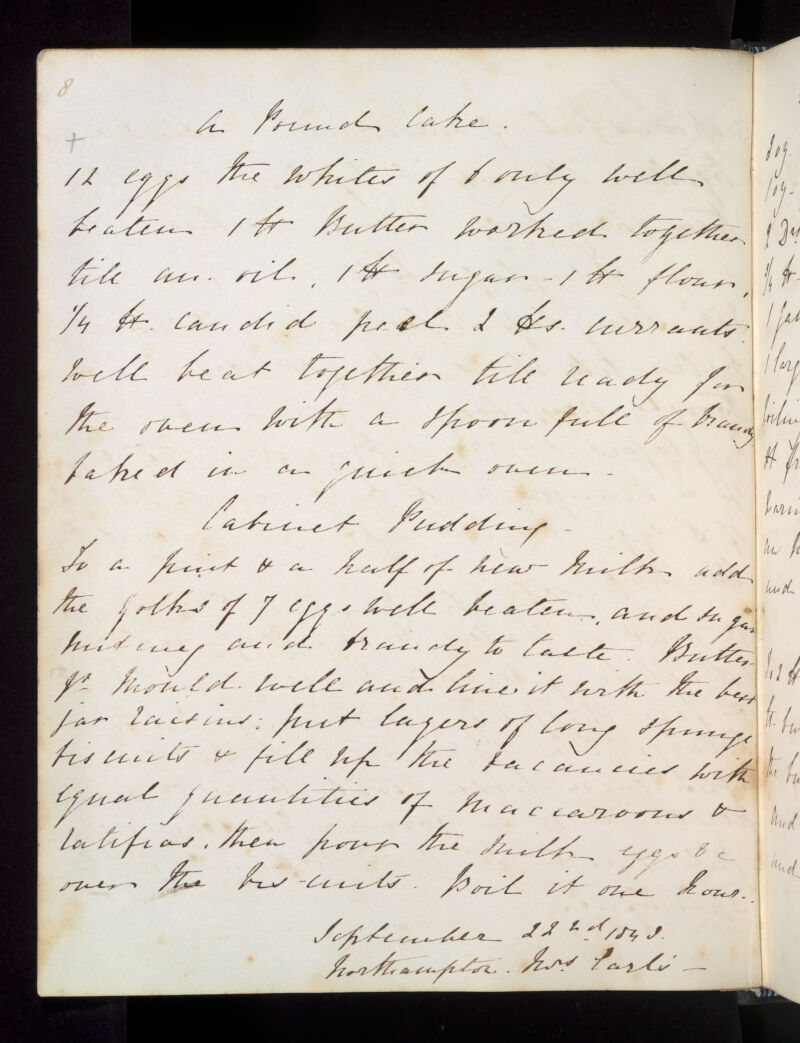 8
+
A Pound Cake.
12 eggs the whites of 6 only well
beaten 1 ℔ Butter worked together
till an oil, 1 ℔ sugar - 1 ℔ flour,
1/4 ℔. candid peel 2 ℔s. currants.
Well beat together till ready for
the oven with a spoon full of brandy
baked in a quick oven.
Cabinet Pudding -
To a pint & a half of new milk add
the yolks of 7 eggs well beaten, and sugar
nutmeg and brandy to taste. Butter
yr. mould well and line it with the best
jar raisins: put layers of long spunge
biscuits & fill up the vacancies with
equal quantities of maccaroons &
ratifias. then pour the milk eggs &c
over the bis-cuits. Boil it one hour.
September 22nd
Northampton. Mrs